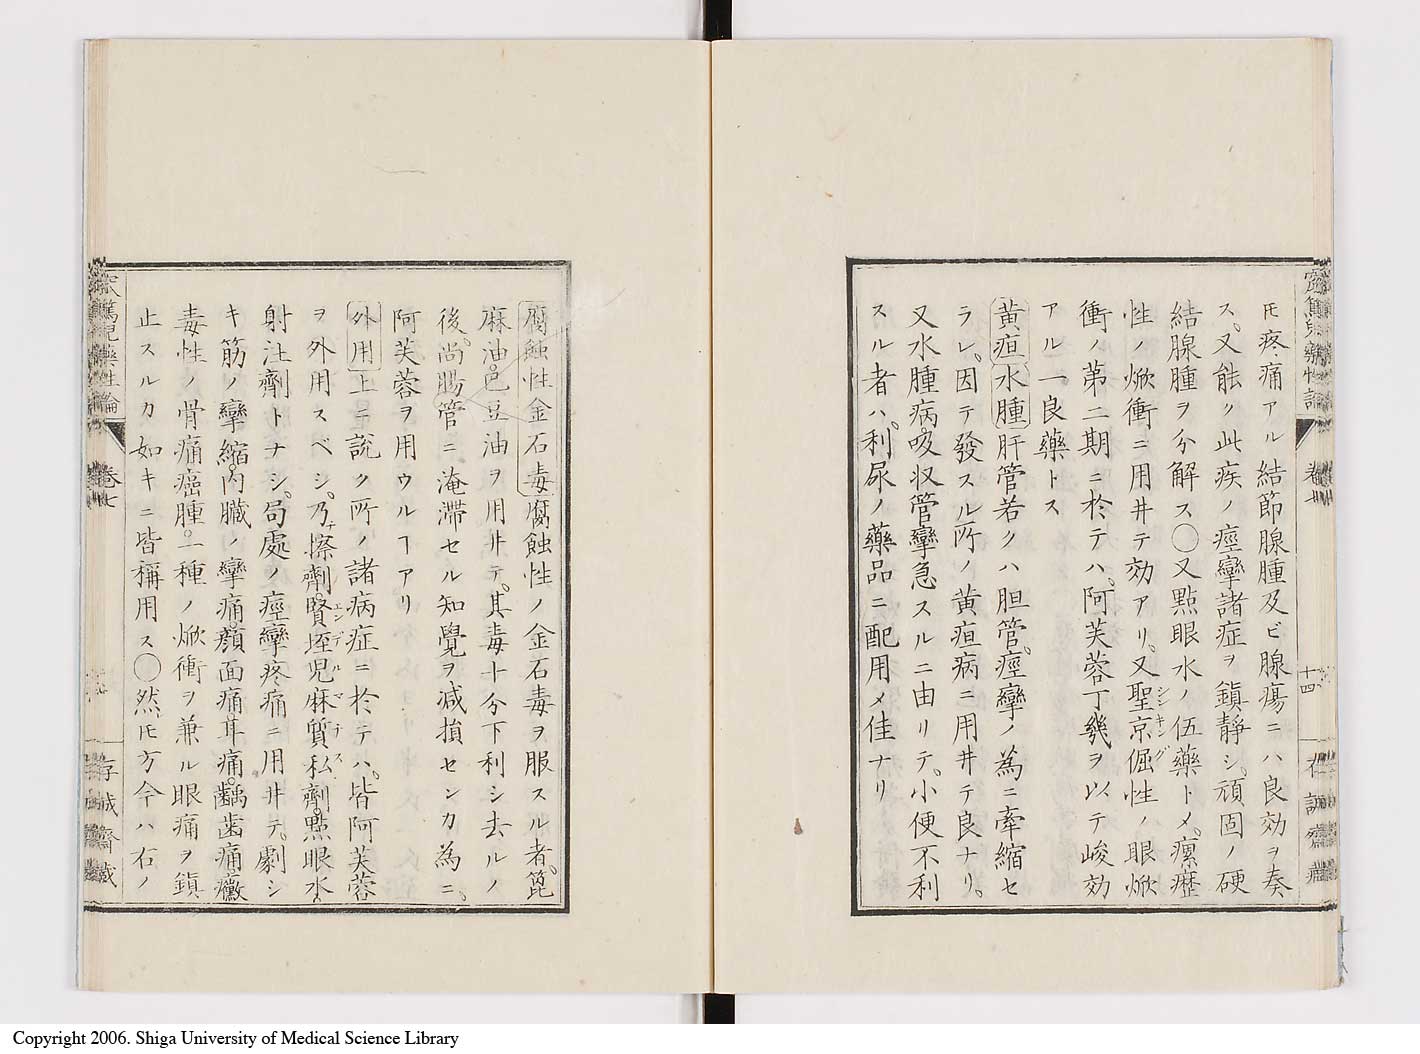 𪜈疼痛アル結節腺腫及ビ腺瘍ニハ良効ヲ奏
ス。又能ク此疾ノ痙攣諸症ヲ鎮靜シ。頑固ノ硬
結腺腫ヲ分解ス〇又點眼水ノ伍藥トメ。瘰癧
性ノ焮衝ニ用井テ効アリ。又聖京倔性ノ眼焮
シンキング
衝ノ第二期ニ於テハ。阿芙蓉丁幾ヲ以テ峻効
アル一良藥トス
黄疸水腫肝管若クハ胆管。痙攣ノ為ニ牽縮セ
ラレ。因テ發スル所ノ黄疸病ニ用井テ良ナリ。
又水腫病。吸収管攣急スルニ由リテ。小便不利
スル者ハ。利尿ノ藥品ニ配用メ佳ナリ
卷七
十四
腐蝕性金石毒腐蝕性ノ金石毒ヲ服スル者。篦
麻油。巴豆油ヲ用井テ。其毒十分下利シ去ルノ
後。尚腸管ニ淹滞セル知覺ヲ减損センカ為ニ。
阿芙蓉ヲ用ウルヿアリ
外用上ニ説ク所ノ諸病症ニ於テハ。皆阿芙蓉
ヲ外用スベシ。乃チ擦劑。賢垤児麻質私劑。點眼水。
エンデルマチス
射注劑トナシ。局處ノ痙攣疼痛ニ用井テ。劇シ
キ筋ノ攣縮。内臓ノ攣痛。顔面痛。耳痛。齲歯痛。黴
毒性ノ骨痛。癌腫。一種ノ焮衝ヲ兼ル眼痛ヲ鎮
止スルカ如キニ皆稱用ス〇然𪜈方今ハ右ノ
窊篤児藥性論
卷七
存誠齋藏